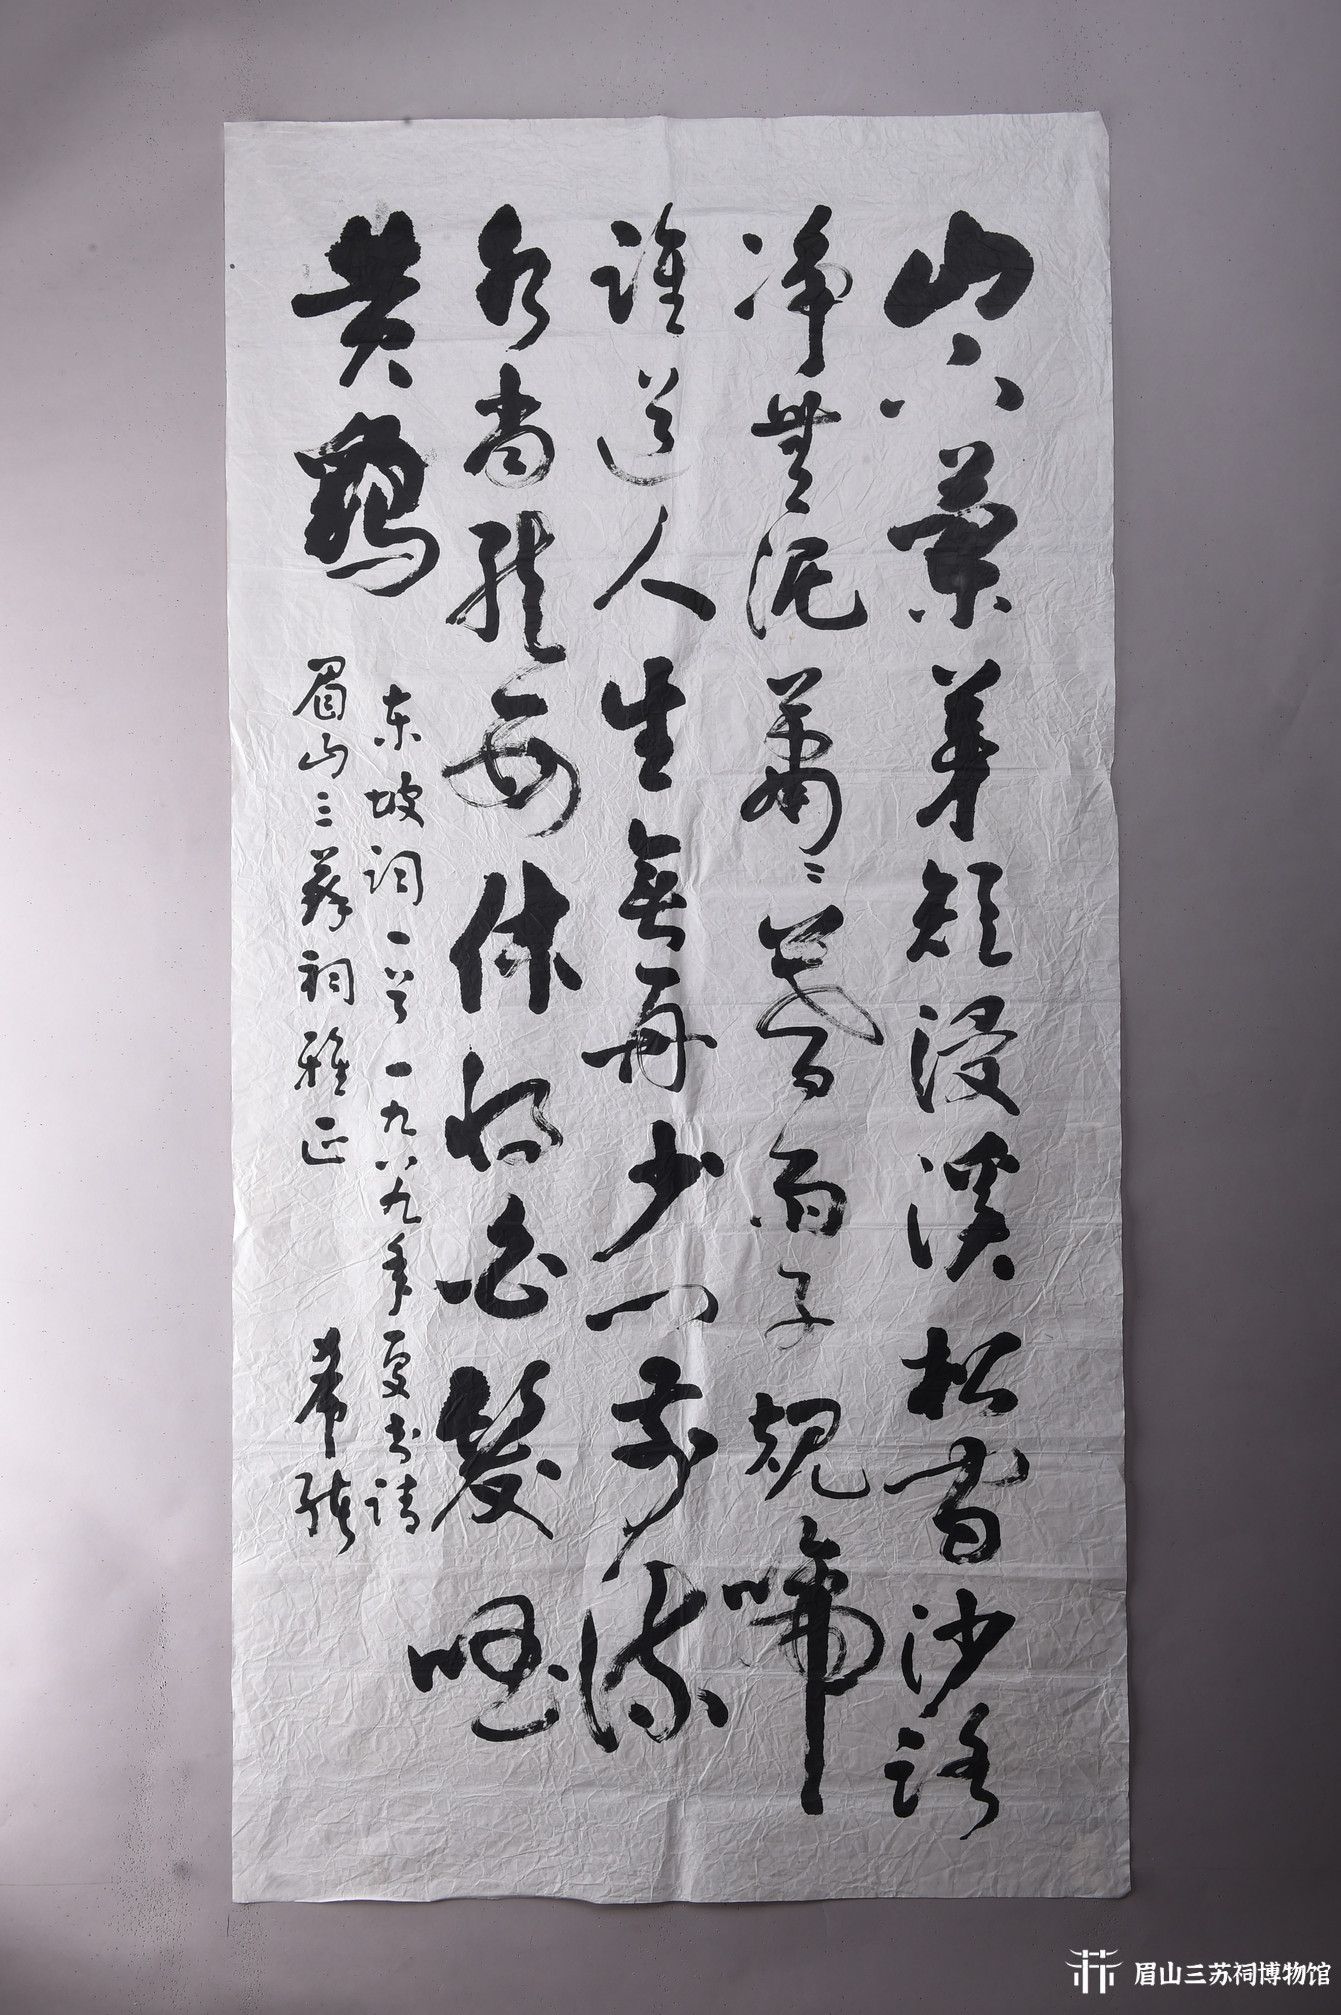 山下蘭芽短浸溪松間沙路
净無泥蕭〻暮雨子規啼
誰道人生無再少門前流
水尚能西休將白髮唱
黄鷄
东坡词一首一九八九年夏书请
眉山三蘇祠雅正
希
眉山三苏祠博物馆